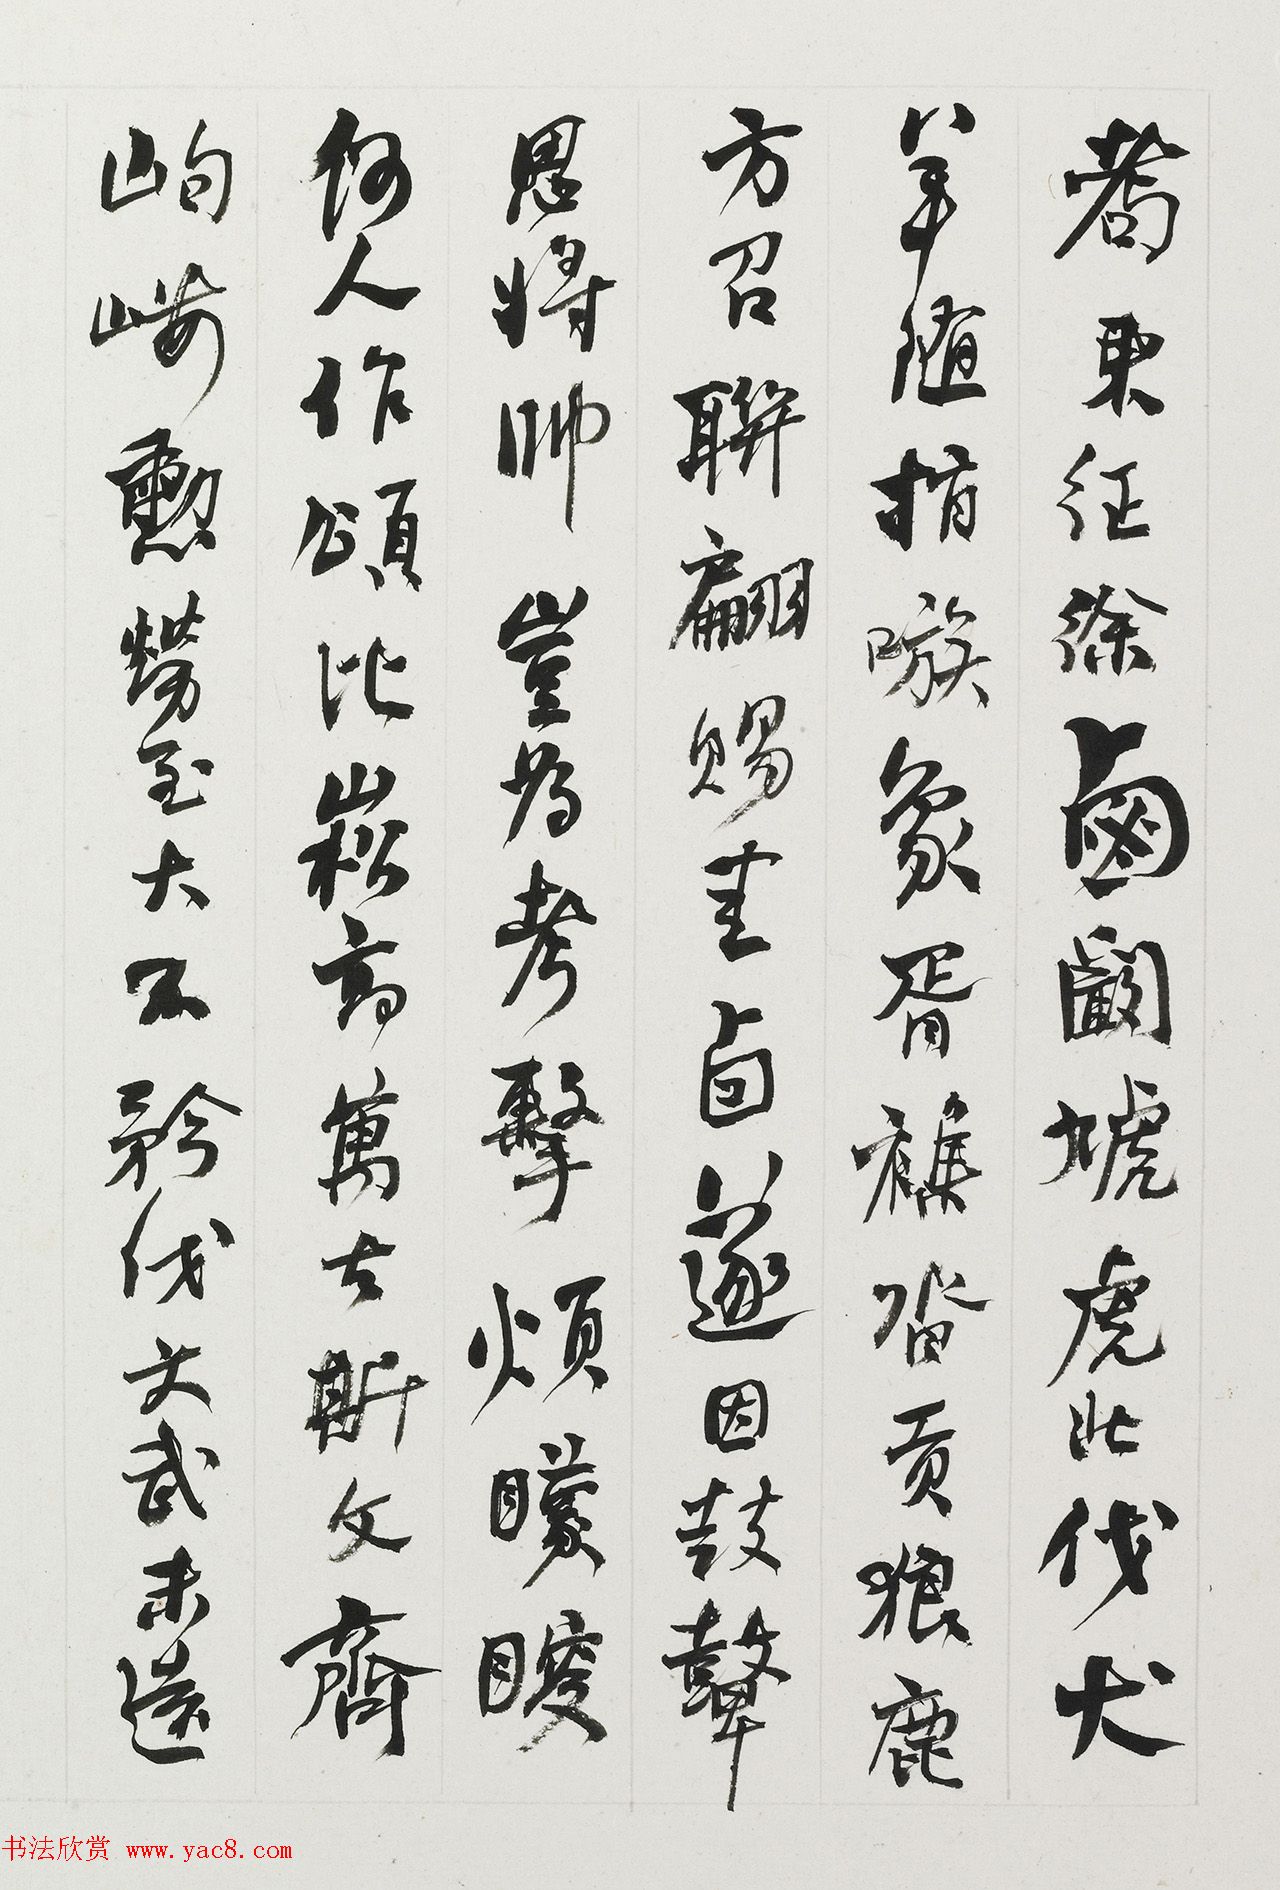 耇東征徐鹵闞虓虎北伐犬
羊隨指嗾象胥雜沓貢狼鹿
方召聯翩賜圭卣遂因鼓鼙
思將帥豈為考擊煩矇瞍
何人作頌比崧高萬古斯文齊
岣嶁勳勞至大不矜伐文武未遠
书法欣赏 www.yac8.com